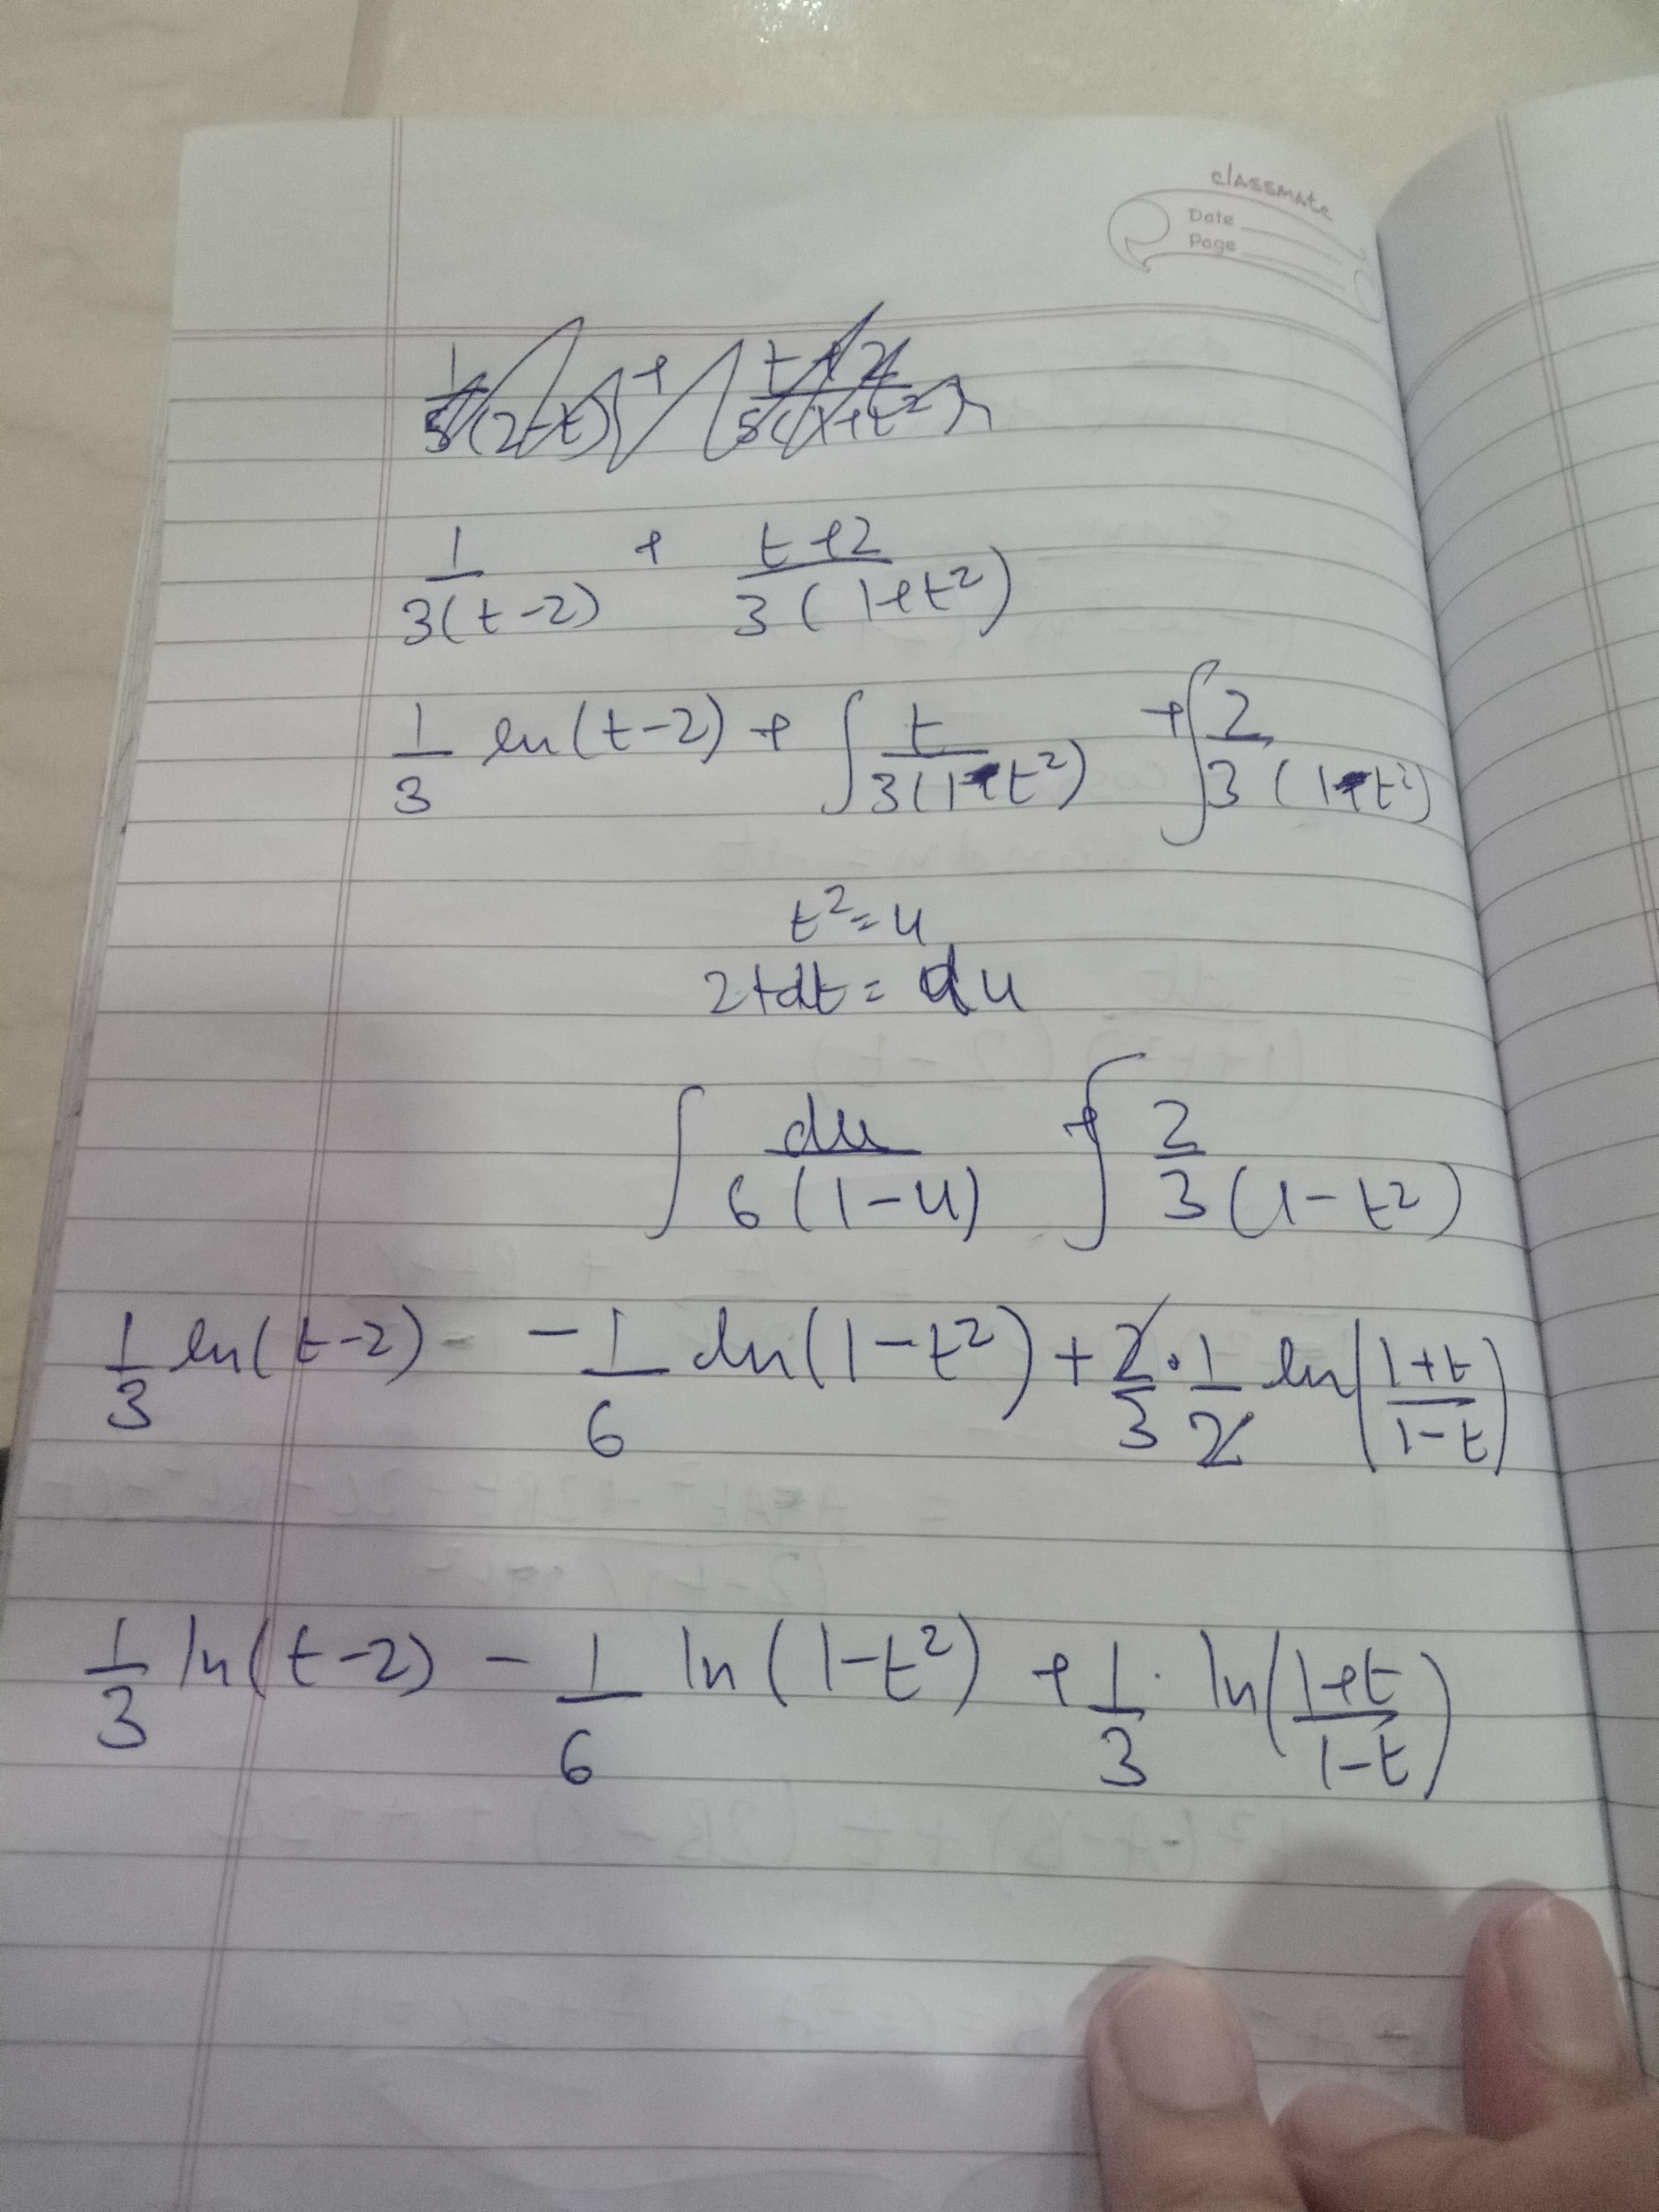 classmate
Date
Page
1/5(2-t) + t+2/5(1+t²)
1/3(t-2) + t+2/3(1+t²)
1/3 ln(t-2) + ∫ t/3(1-t²) + ∫ 2/3(1-t²)
t² = u
2tdt = du
∫ du/6(1-u) + ∫ 2/3(1-t²)
1/3 ln(t-2) - -1/6 ln(1-t²) + 2/3 · 1/2 ln(1+t/1-t)
1/3 ln(t-2) - 1/6 ln(1-t²) + 1/3 · ln(1+t/1-t)